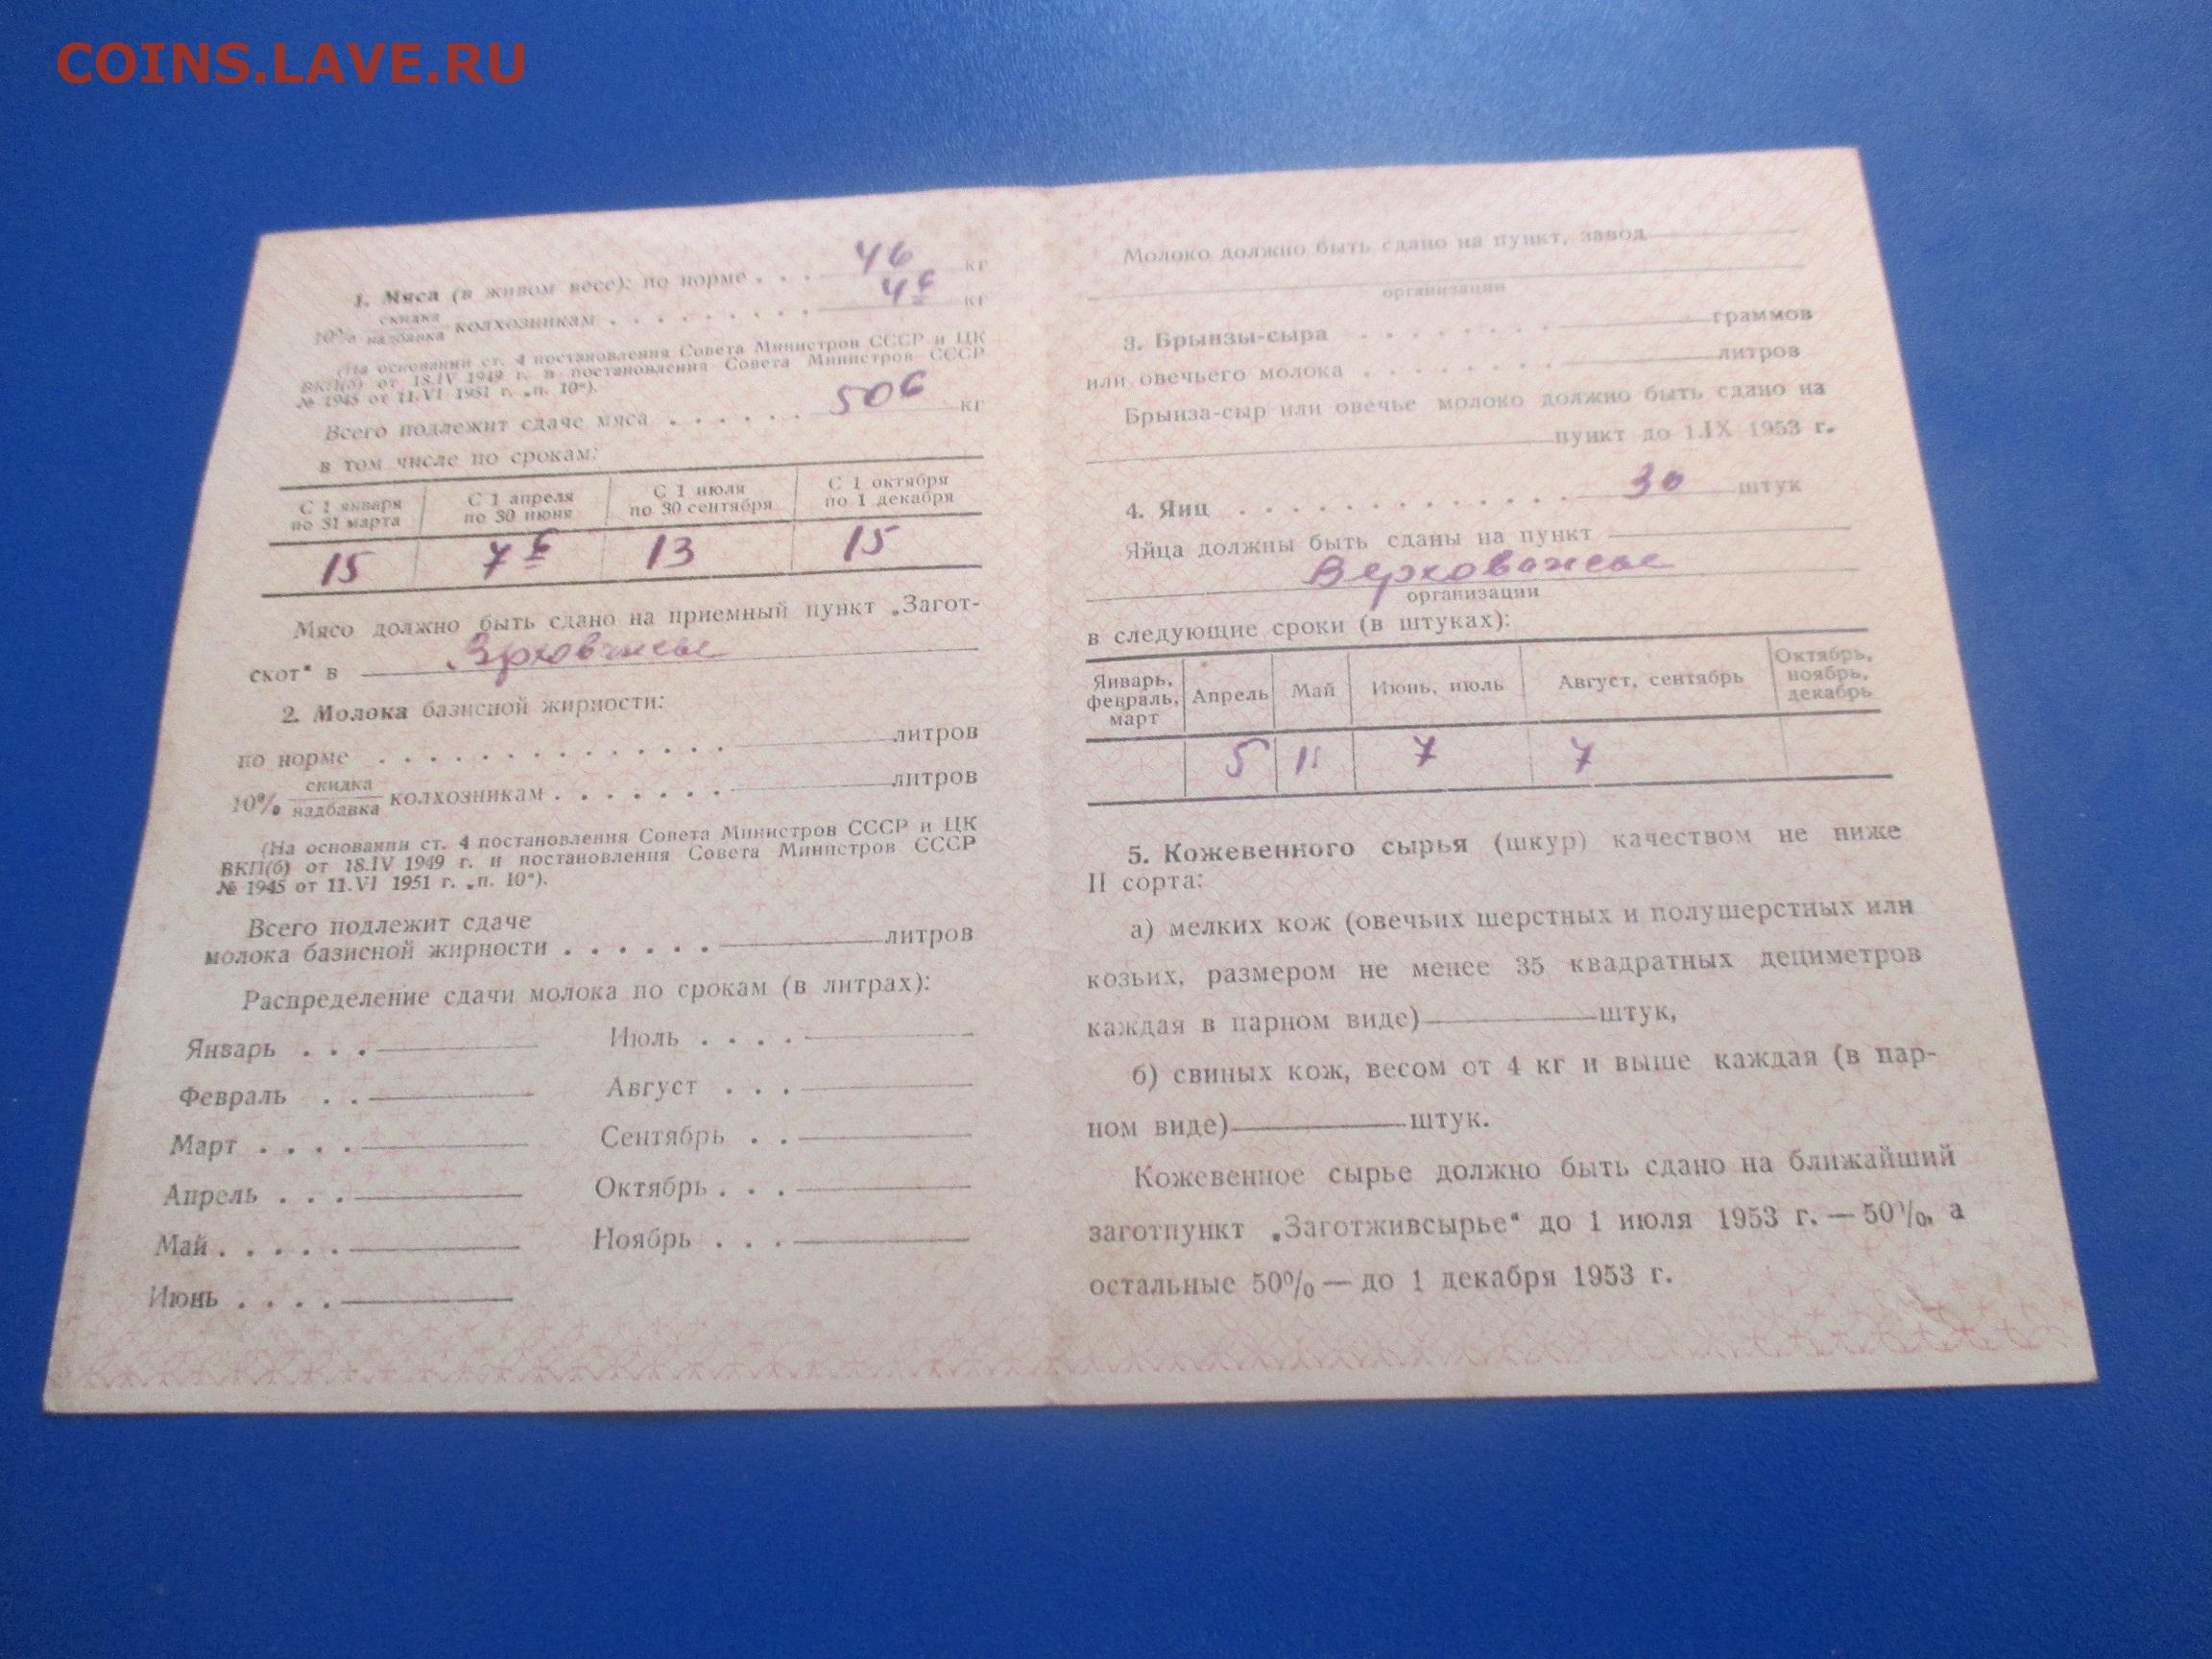 COINS.LAVE.RU
1. Мяса (в живом весе): по норме . . . 46 кг
10% скидка надбавка колхозникам . . . . . . . . . 4 6 кг
(На основании ст. 4 постановления Совета Министров СССР и ЦК
ВКП(б) от 18.IV 1949 г. и постановления Совета Министров СССР
№ 1945 от 11.VI 1951 г. „п. 10“).
Всего подлежит сдаче мяса . . . . . . 50 6 кг
в том числе по срокам:
С 1 января по 31 марта
С 1 апреля по 30 июня
С 1 июля по 30 сентября
С 1 октября по 1 декабря
15 7 6 13 15
Мясо должно быть сдано на приемный пункт „Загот-
скот“ в
2. Молока базисной жирности:
по норме . . . . . . . . . . . . . . литров
10% скидка надбавка колхозникам . . . . . . . литров
(На основании ст. 4 постановления Совета Министров СССР и ЦК
ВКП(б) от 18.IV 1949 г. и постановления Совета Министров СССР
№ 1945 от 11.VI 1951 г. „п. 10“).
Всего подлежит сдаче
молока базисной жирности . . . . . . литров
Распределение сдачи молока по срокам (в литрах):
Январь . . .
Февраль . .
Март . . . .
Апрель . . .
Май . . . . .
Июнь . . . .
Июль . . . .
Август . . .
Сентябрь . .
Октябрь . . .
Ноябрь . . .
Молоко должно быть сдано на пункт, завод
организации
3. Брынзы-сыра . . . . . . . . граммов
или овечьего молока . . . . . . . . литров
Брынза-сыр или овечье молоко должно быть сдано на
пункт до 1.IX 1953 г.
4. Яиц . . . . . . . . . . . . . 30 штук
Яйца должны быть сданы на пункт
Верховажье
организации
в следующие сроки (в штуках):
Январь, февраль, март
Апрель
Май
Июнь, июль
Август, сентябрь
Октябрь, ноябрь, декабрь
5 11 7 7
5. Кожевенного сырья (шкур) качеством не ниже
II сорта:
а) мелких кож (овечьих шерстных и полушерстных или
козьих, размером не менее 35 квадратных дециметров
каждая в парном виде) штук,
б) свиных кож, весом от 4 кг и выше каждая (в пар-
ном виде) штук.
Кожевенное сырье должно быть сдано на ближайший
заготпункт „Заготживсырье“ до 1 июля 1953 г. — 50%, а
остальные 50% — до 1 декабря 1953 г.